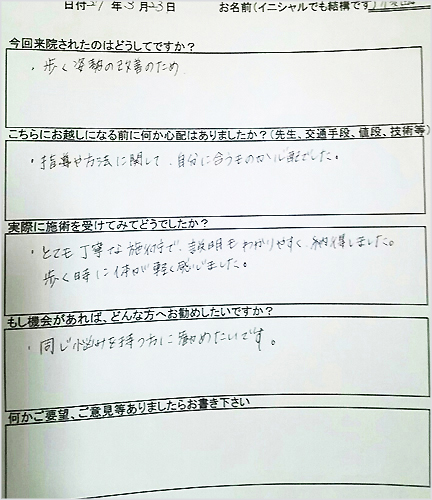 日付 27 年 3 月 23 日 お名前(イニシャルでも結構です)
今回来院されたのはどうしてですか?
・歩く姿勢の改善のため
こちらにお越しになる前に何か心配はありましたか?(先生、交通手段、値段、技術等)
・指導や方法に関して、自分に合うものか心配でした。
実際に施術を受けてみてどうでしたか?
・とても丁寧な施術で、説明もわかりやすく、納得しました。
歩く時に体が軽く感じました。
もし機会があれば、どんな方へお勧めしたいですか?
・同じ悩みを持つ方に勧めたいです。
何かご要望、ご意見等ありましたらお書き下さい